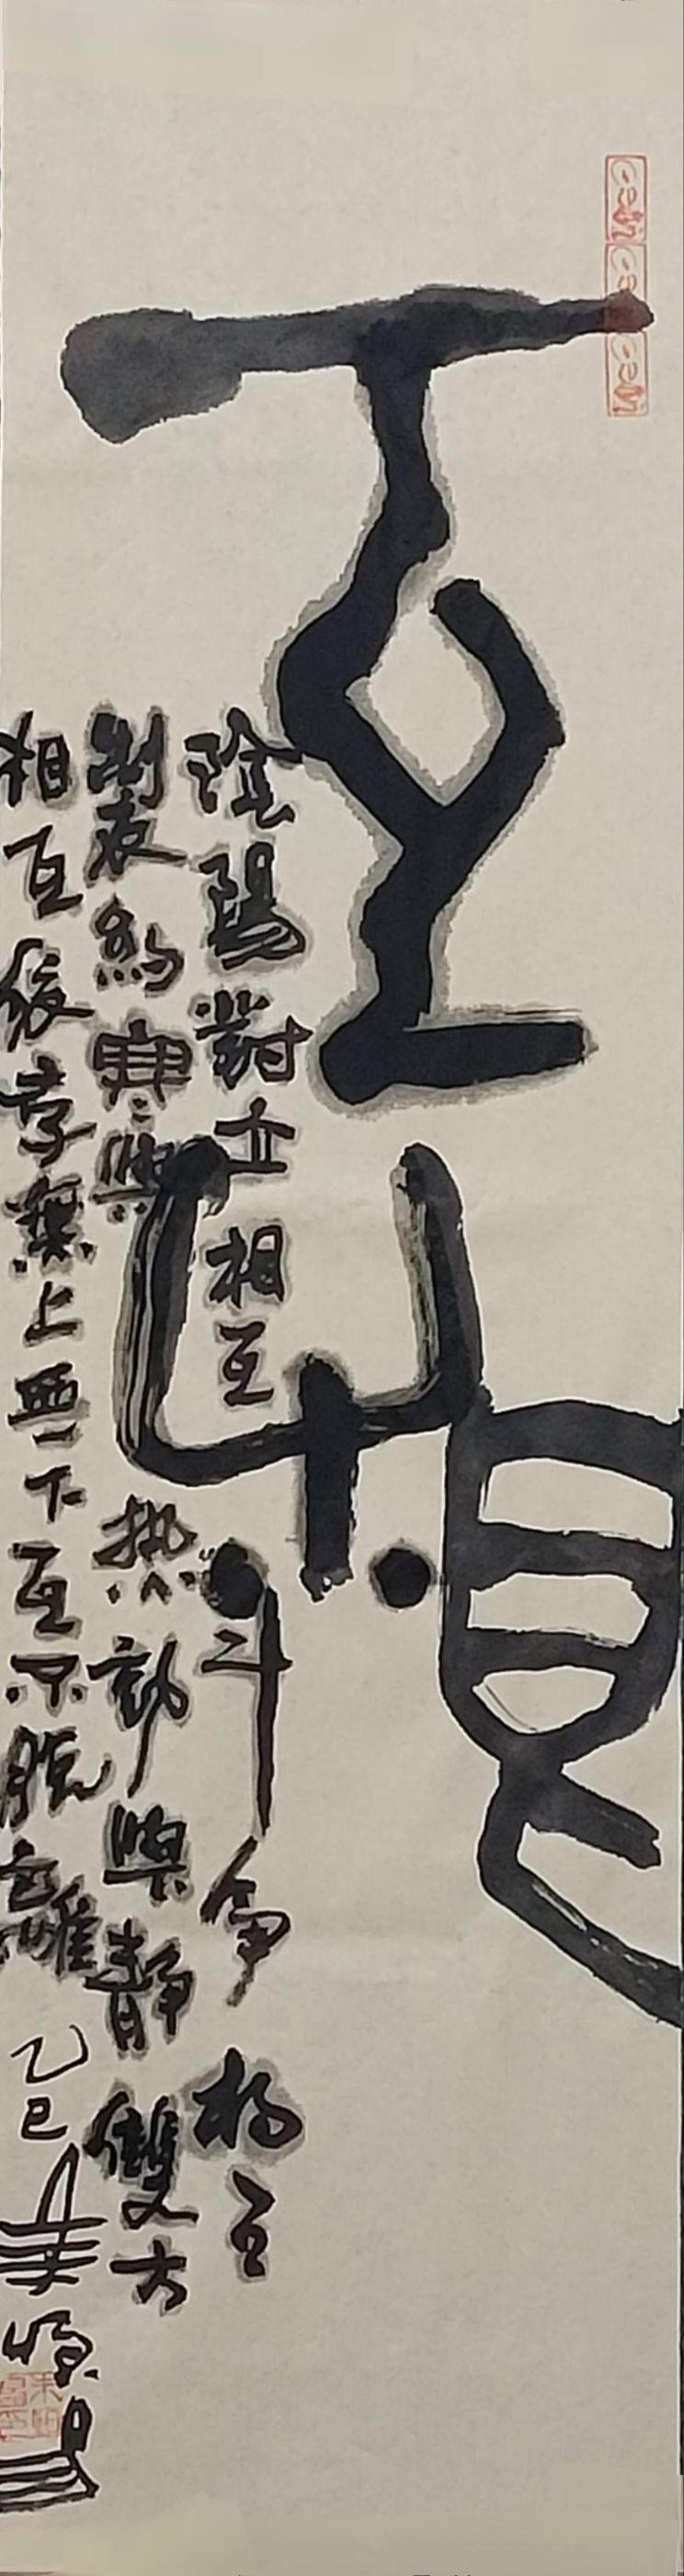 互根
陰陽對立相互斗争相互
製約寒與热動與静雙方
相互依存無上下互不脱離
乙巳